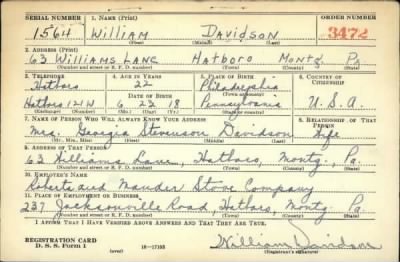 SERIAL NUMBER 1. NAME (Print) ORDER NUMBER
1564 William Davidson 3472
(First) (Middle) (Last)
2. ADDRESS (Print)
63 Williams Lane Hatboro Montg. Pa.
(Number and street or R. F. D. number) (Town) (County) (State)
3. TELEPHONE 4. AGE IN YEARS 5. PLACE OF BIRTH 6. COUNTRY OF CITIZENSHIP
Hatboro 22 Philadelphia
DATE OF BIRTH (Town or county)
Hatboro 121W 6 23 18 Pennsylvania U.S.A.
(Exchange) (Number) (Mo.) (Day) (Yr.) (State or country)
7. NAME OF PERSON WHO WILL ALWAYS KNOW YOUR ADDRESS 8. RELATIONSHIP OF THAT PERSON
Mrs. Georgia Stevenson Davidson Wife
(Mr., Mrs., Miss) (First) (Middle) (Last)
9. ADDRESS OF THAT PERSON
63 Williams Lane, Hatboro, Montg., Pa.
(Number and street or R. F. D. number) (Town) (County) (State)
10. EMPLOYER'S NAME
Roberts and Mander Stove Company
11. PLACE OF EMPLOYMENT OR BUSINESS
237 Jacksonville Road Hatboro, Montg. Pa.
(Number and street or R. F. D. number) (Town) (County) (State)
I AFFIRM THAT I HAVE VERIFIED ABOVE ANSWERS AND THAT THEY ARE TRUE.
REGISTRATION CARD
D. S. S. Form 1 (over) 16—17105 William Davidson
(Registrant's signature)